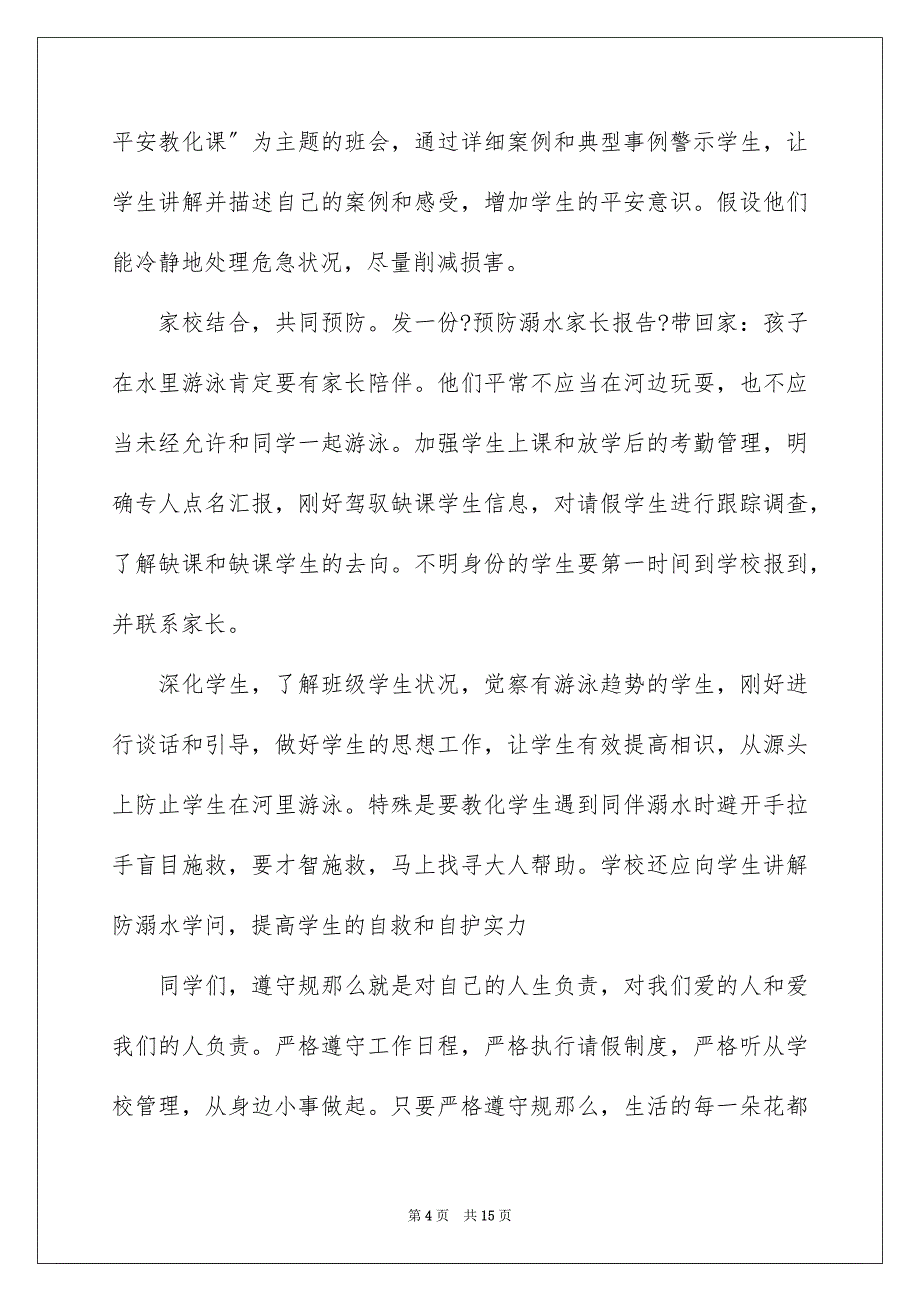 平安教化课〞为主题的班会，通过详细案例和典型事例警示学生，让
学生讲解并描述自己的案例和感受，增加学生的平安意识。假设他们
能冷静地处理危急状况，尽量削减损害。
家校结合，共同预防。发一份?预防溺水家长报告?带回家：孩子
在水里游泳肯定要有家长陪伴。他们平常不应当在河边玩耍，也不应
当未经允许和同学一起游泳。加强学生上课和放学后的考勤管理，明
确专人点名汇报，刚好驾驭缺课学生信息，对请假学生进行跟踪调查，
了解缺课和缺课学生的去向。不明身份的学生要第一时间到学校报到，
并联系家长。
深化学生，了解班级学生状况，觉察有游泳趋势的学生，刚好进
行谈话和引导，做好学生的思想工作，让学生有效提高相识，从源头
上防止学生在河里游泳。特殊是要教化学生遇到同伴溺水时避开手拉
手盲目施救，要才智施救，马上找寻大人帮助。学校还应向学生讲解
防溺水学问，提高学生的自救和自护实力
同学们，遵守规那么就是对自己的人生负责，对我们爱的人和爱
我们的人负责。严格遵守工作日程，严格执行请假制度，严格听从学
校管理，从身边小事做起。只要严格遵守规那么，生活的每一朵花都
第 4 页 共 15 页